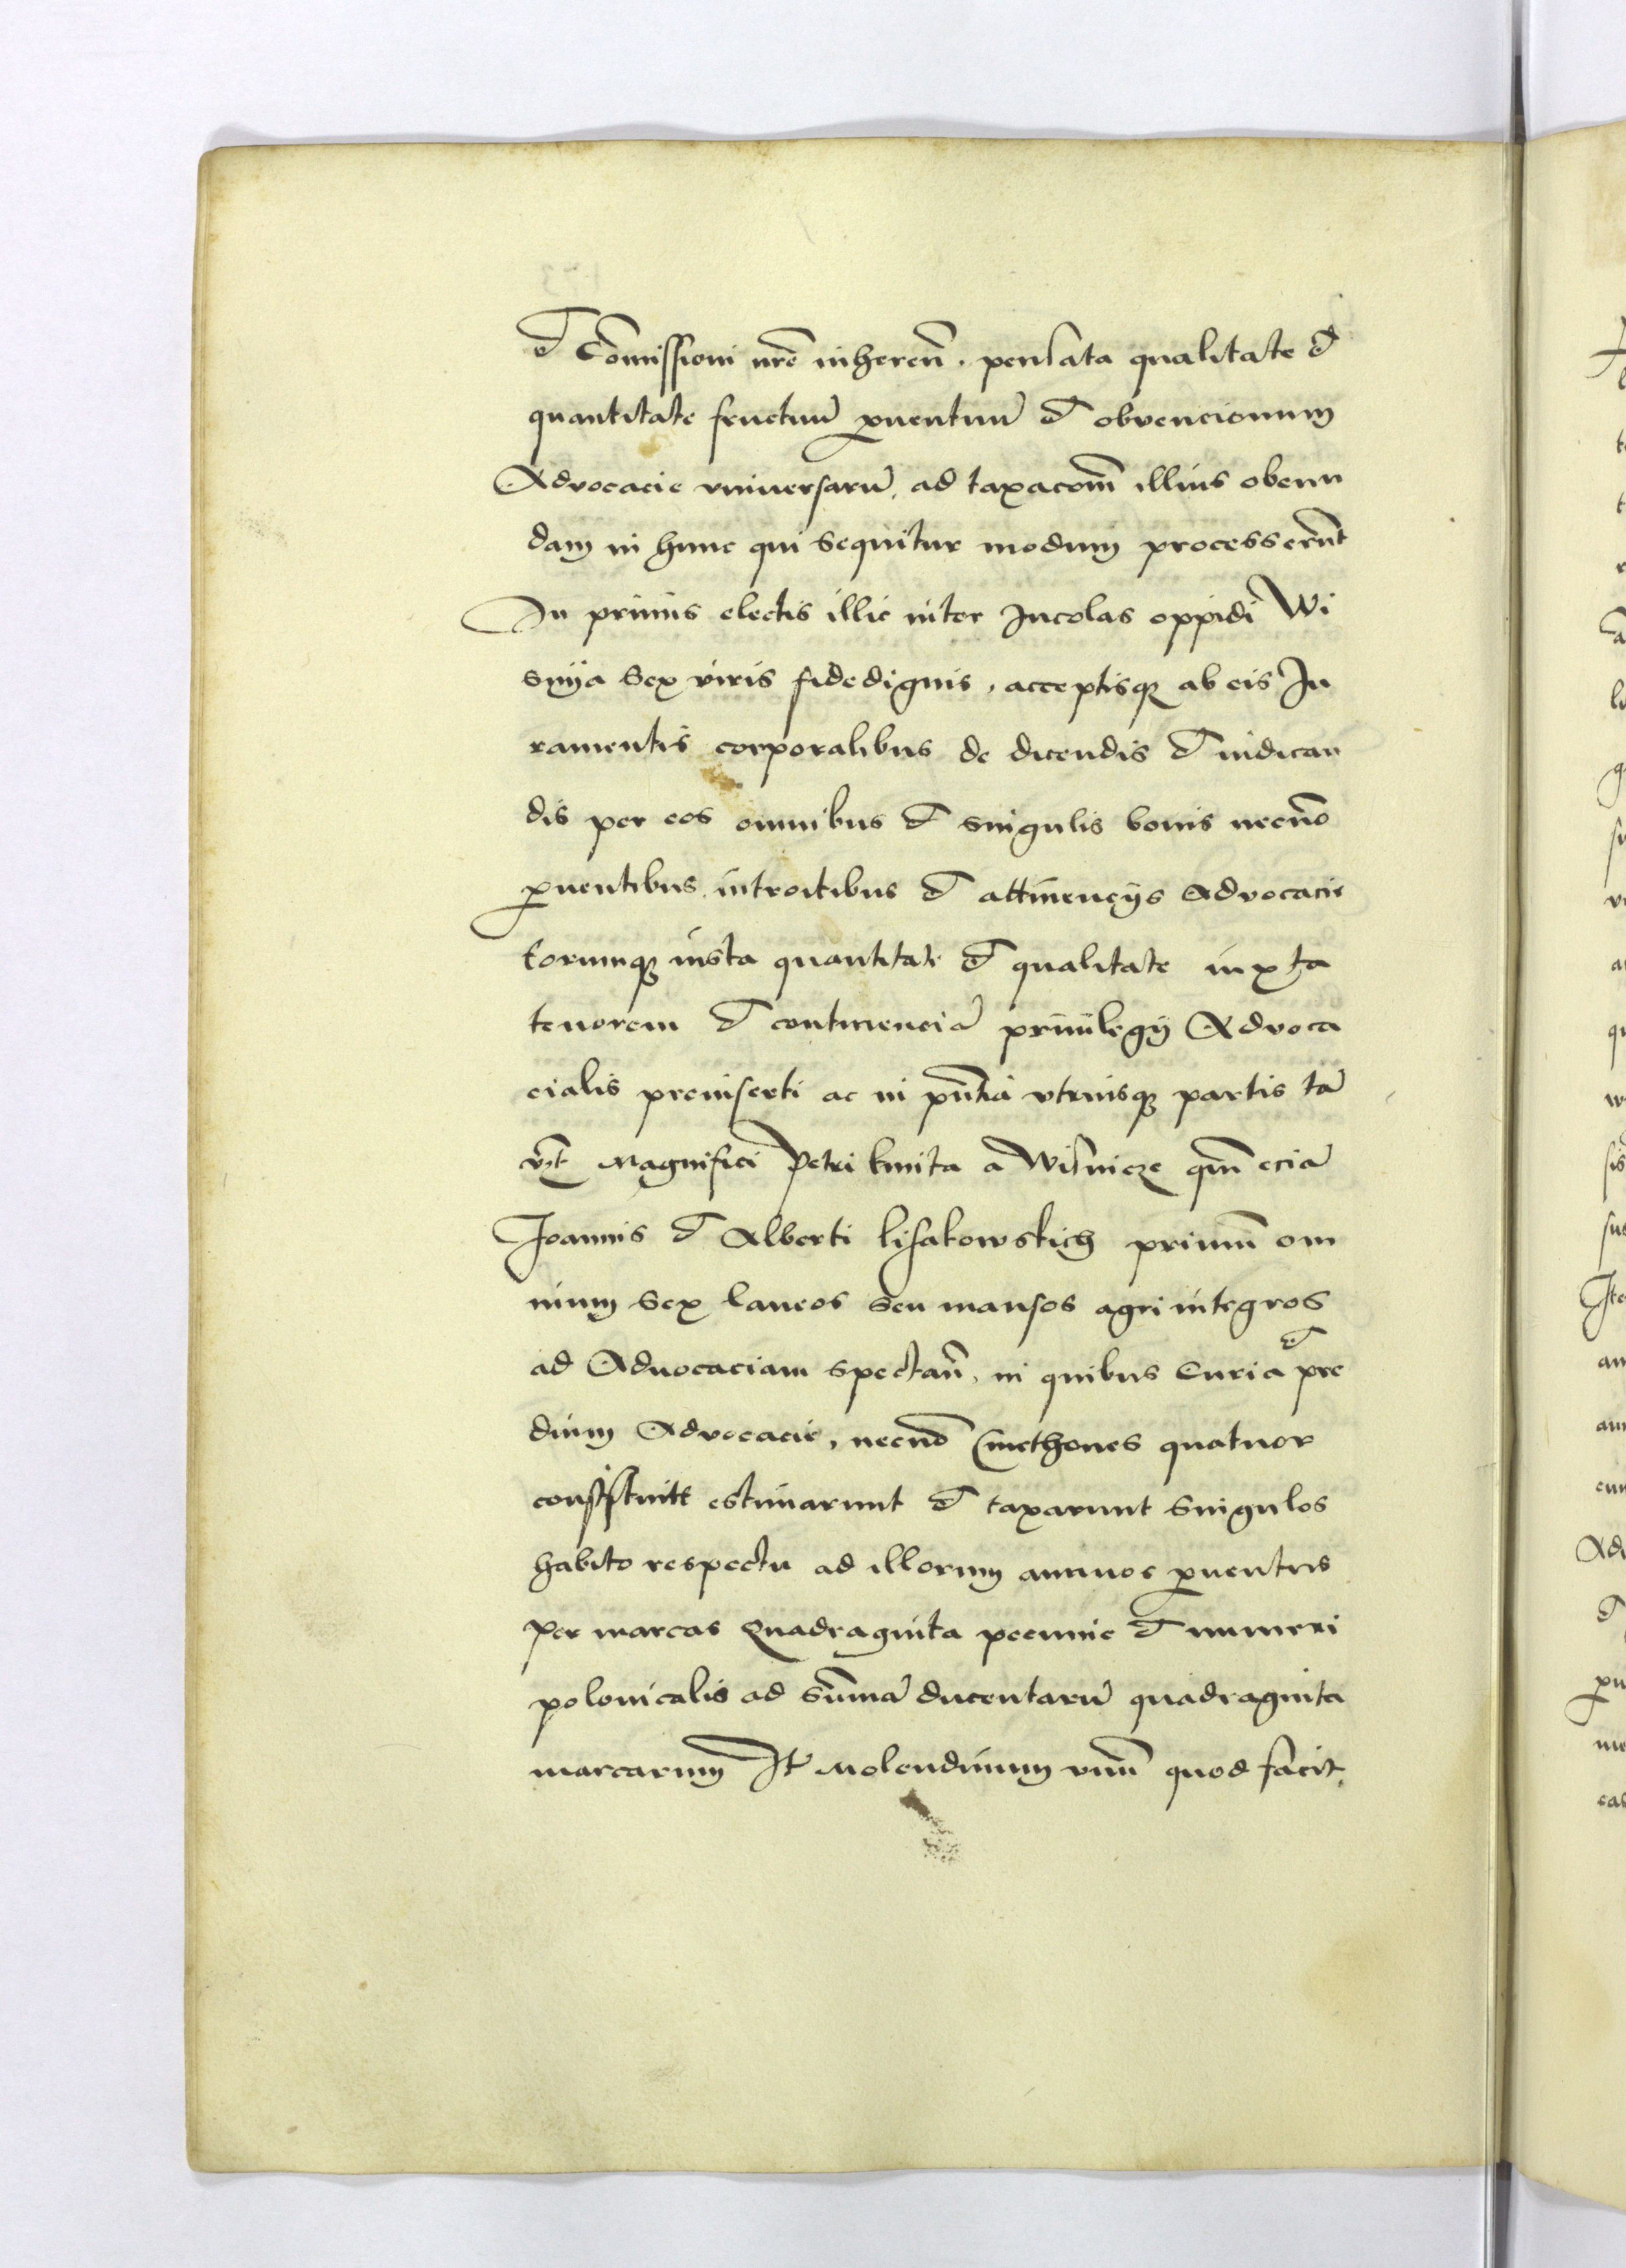 et Com̄issioni nr̄e inheren̄. pensata qualitate et
quantitate fructuū ꝓuentuū et obvencionum
Advocacie vniuersarū, ad taxacōm illius obeun
dam in hunc qui sequitur modum processerūnt
In primis electis illic inter Incolas oppidi Wi
snÿa Sex viris fidedignis, acceptisqꝫ ab eis Iu
ramentis corporalibus de dicendis et indican
dis per eos omnibus et singulis bonis necnō
ꝓuentibus introitibus et attinencÿs Advocacie
eorumqꝫ iusta quantitate et qualitate iuxta
tenorem et continenciā priuilegÿ Advoca
cialis preinserti ac in pn̄tia vtriusqꝫ partis tā
Magnifici Petri kmita a Wisnicze qm̄ eciā
Joannis et Alberti lisakowskich primū om
nium Sex laneos seu mansos agri integros
ad Aduocaciam spectan̄, in quibus Curia et pre
dium Advocacie, necnō Cmethones quatuor
estimarunt et taxarunt singulos
habito respectu ad illorum annuos ꝓuentus
per marcas Quadraginta pecunie et numeri
polonicalis ad sum̄ā ducentarū quadraginta
marcarum It Molendinum vnū quod facit